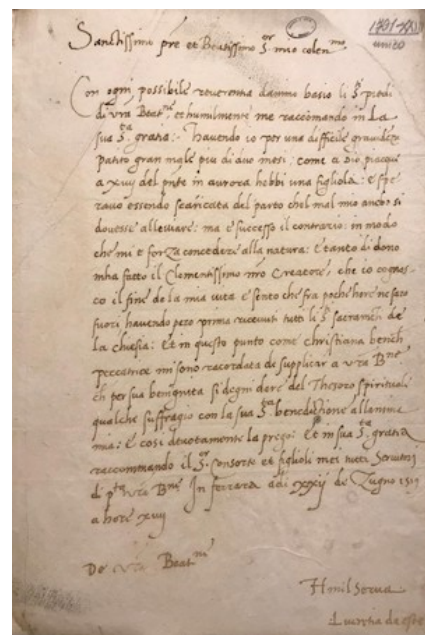 Sanctissimo pre et Beatissimo Sor mio colenmo
Con ogni possibile reverentia d'animo basio li S. piedi
di vra Beatne, et humilmente me raccomando in La
sua Sta gratia: Havendo io per una difficile gravidezza
patito gran male piu di duo mesi: come a Dio piacque
a xiiij del pnte in aurora hebbi una figliola: e spe
ravo essendo scaricata del parto chel mal mio anche si
dovesse alleviare: ma e successo il contrario: in modo
che mi e forza concedere alla natura: E tanto di dono
mha fatto il Clementissimo nro Creatore, che io cognos
co il fine de la mia vita e sento che fra poche hore ne saro
fuori havendo pero prima ricevuti tutti li S. sacramenti de
la chiesia: Et in questo punto come christiana bench
peccatrice mi sono racordata de supplicar a vra Bne
ch per sua benignita si degni dare del Thesoro spirituale
qualche suffragio con la sua Sta benedictione all anima
mia: e cosi devotamente la prego: Et in sua Sta gratia
raccommando il Sor consorte et figlioli mei tutti servitori
di pta vra Bne In ferrara adi xxij de Zugno 1519
a hore xviij
De vra Beatne
Hmil serva
Lucretia da este
unico